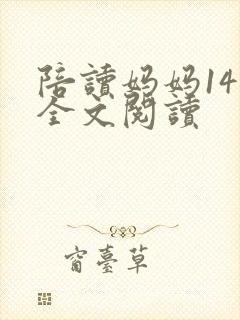 陪讀妈妈14
全文閱讀
窗臺草